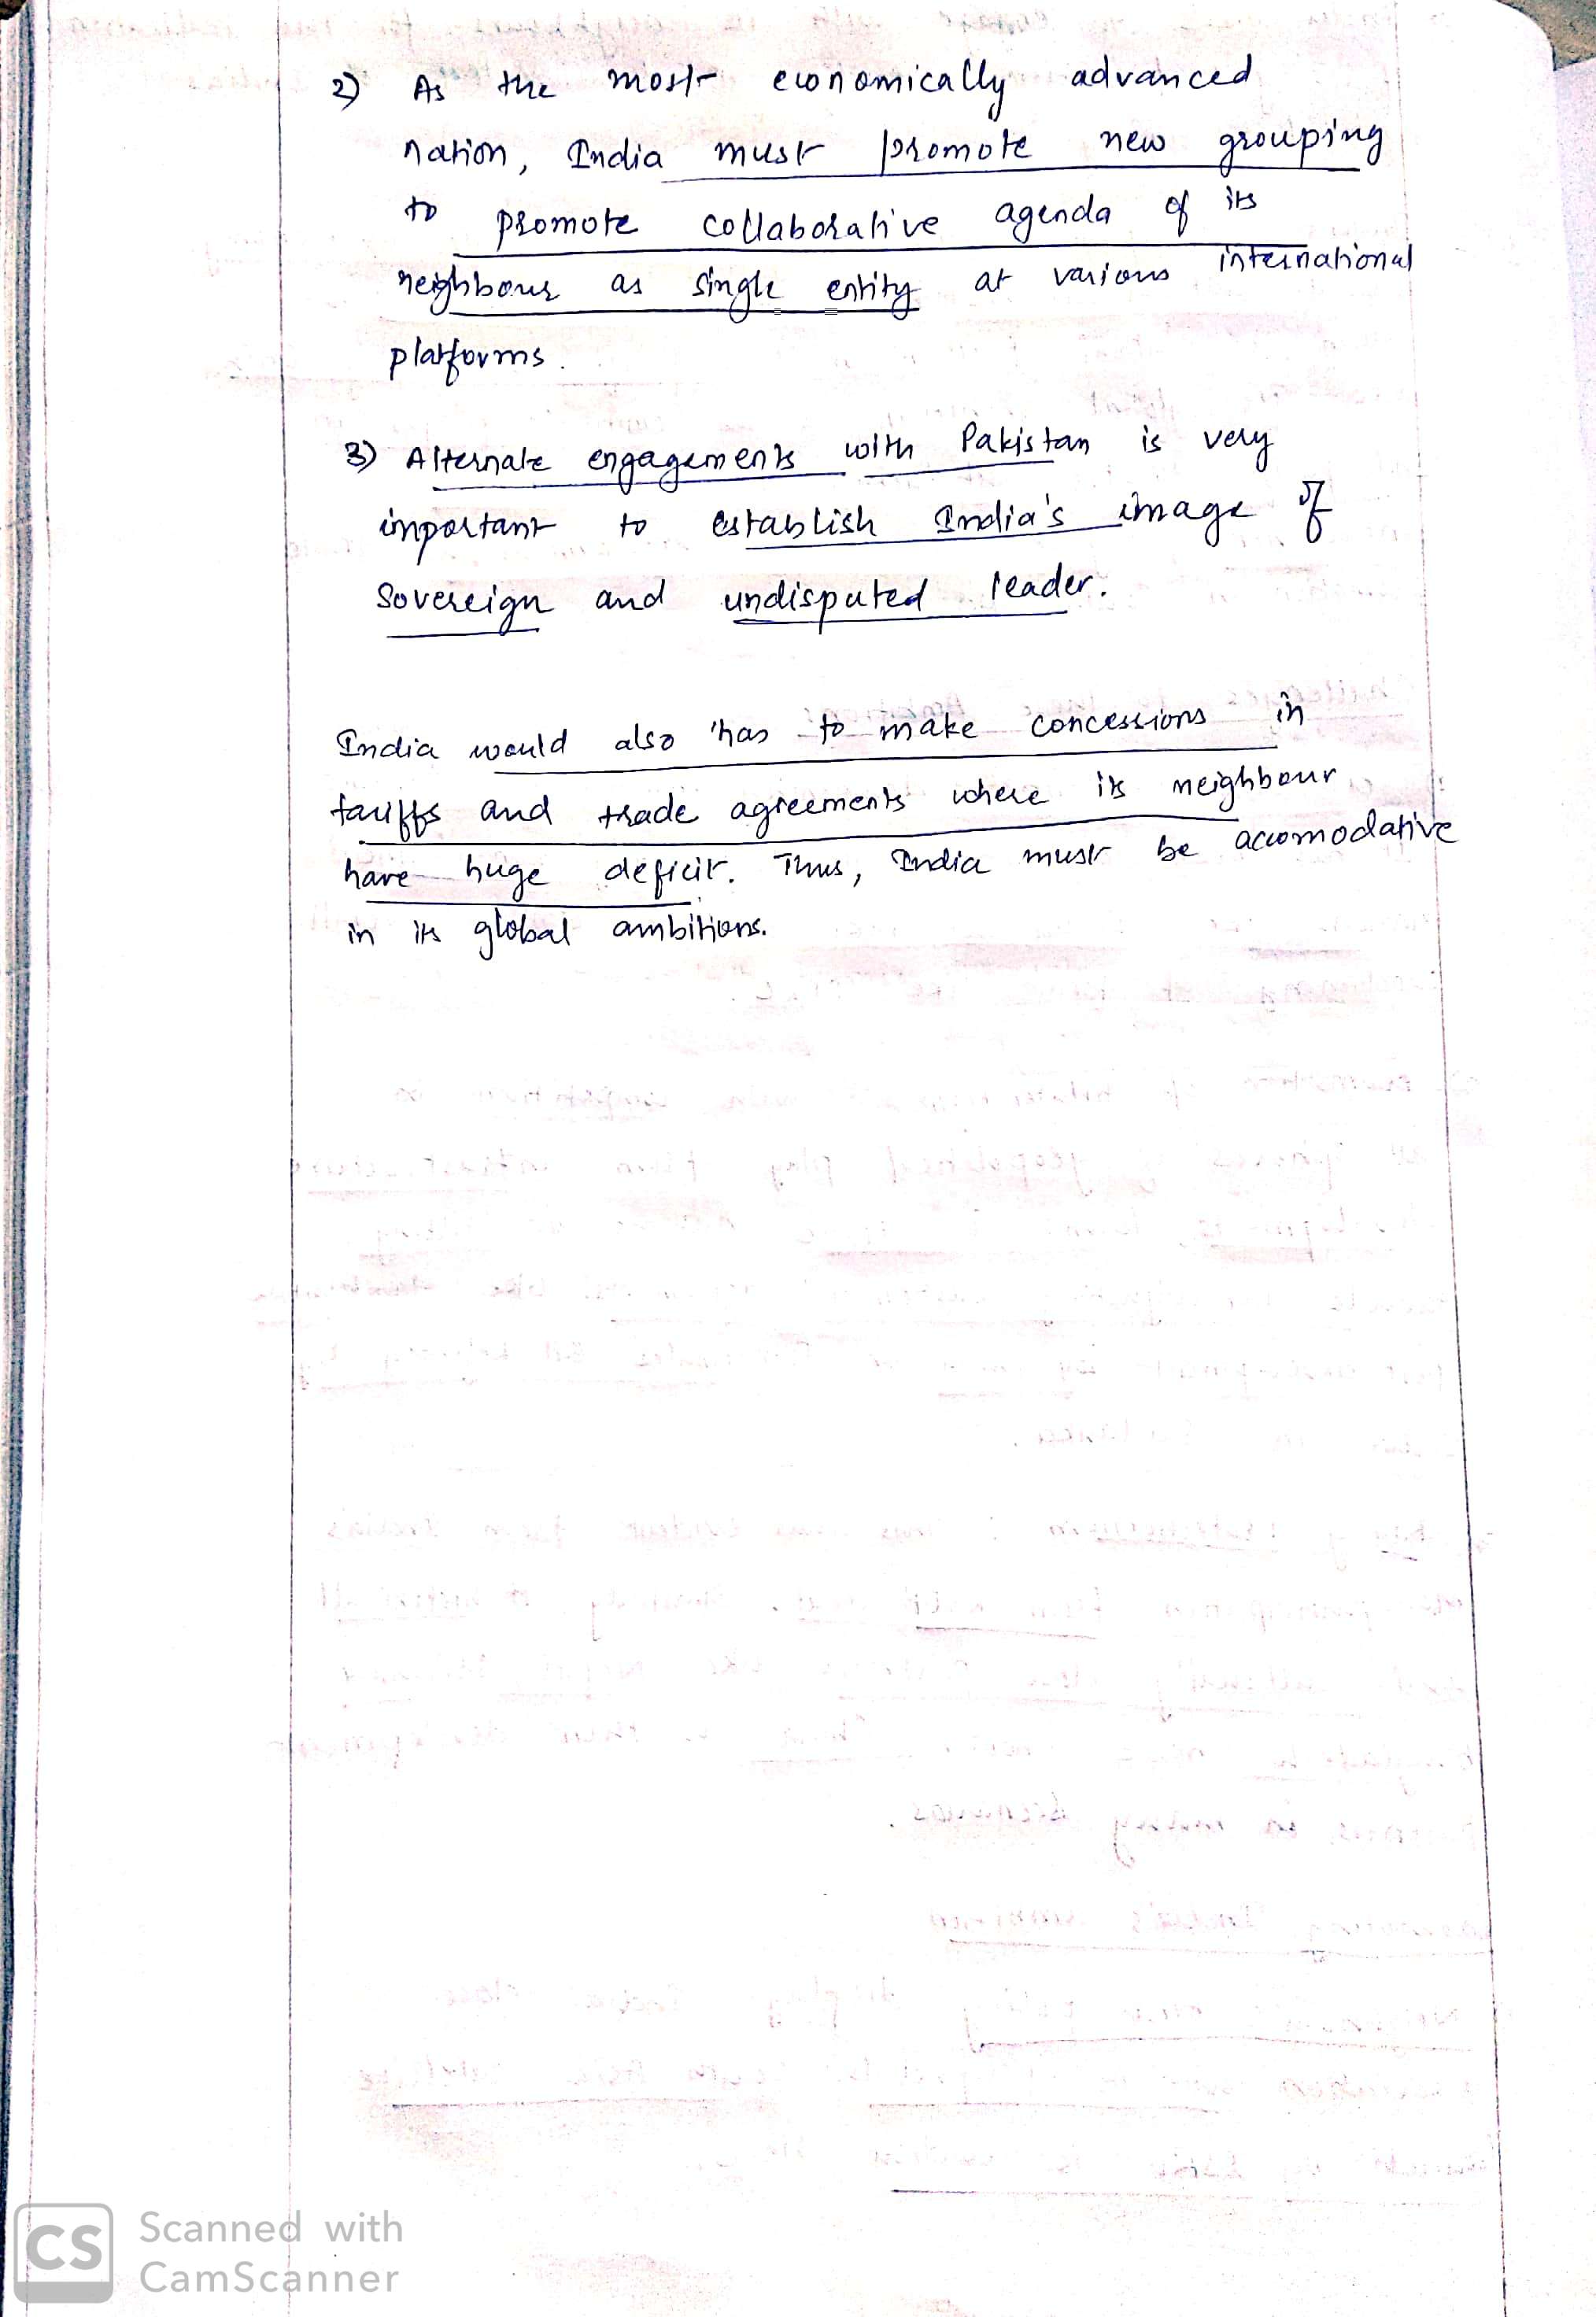 2) As the most economically advanced
nation, India must promote new grouping
to promote collaborative agenda of its
neighbours as single entity at various international
platforms.
3) Alternate engagements with Pakistan is very
important to establish India's image of
Sovereign and undisputed leader.
India would also has to make concessions in
tariffs and trade agreements where its neighbour
have huge deficit. Thus, India must be accomodative
in its global ambitions.
CS Scanned with
CamScanner